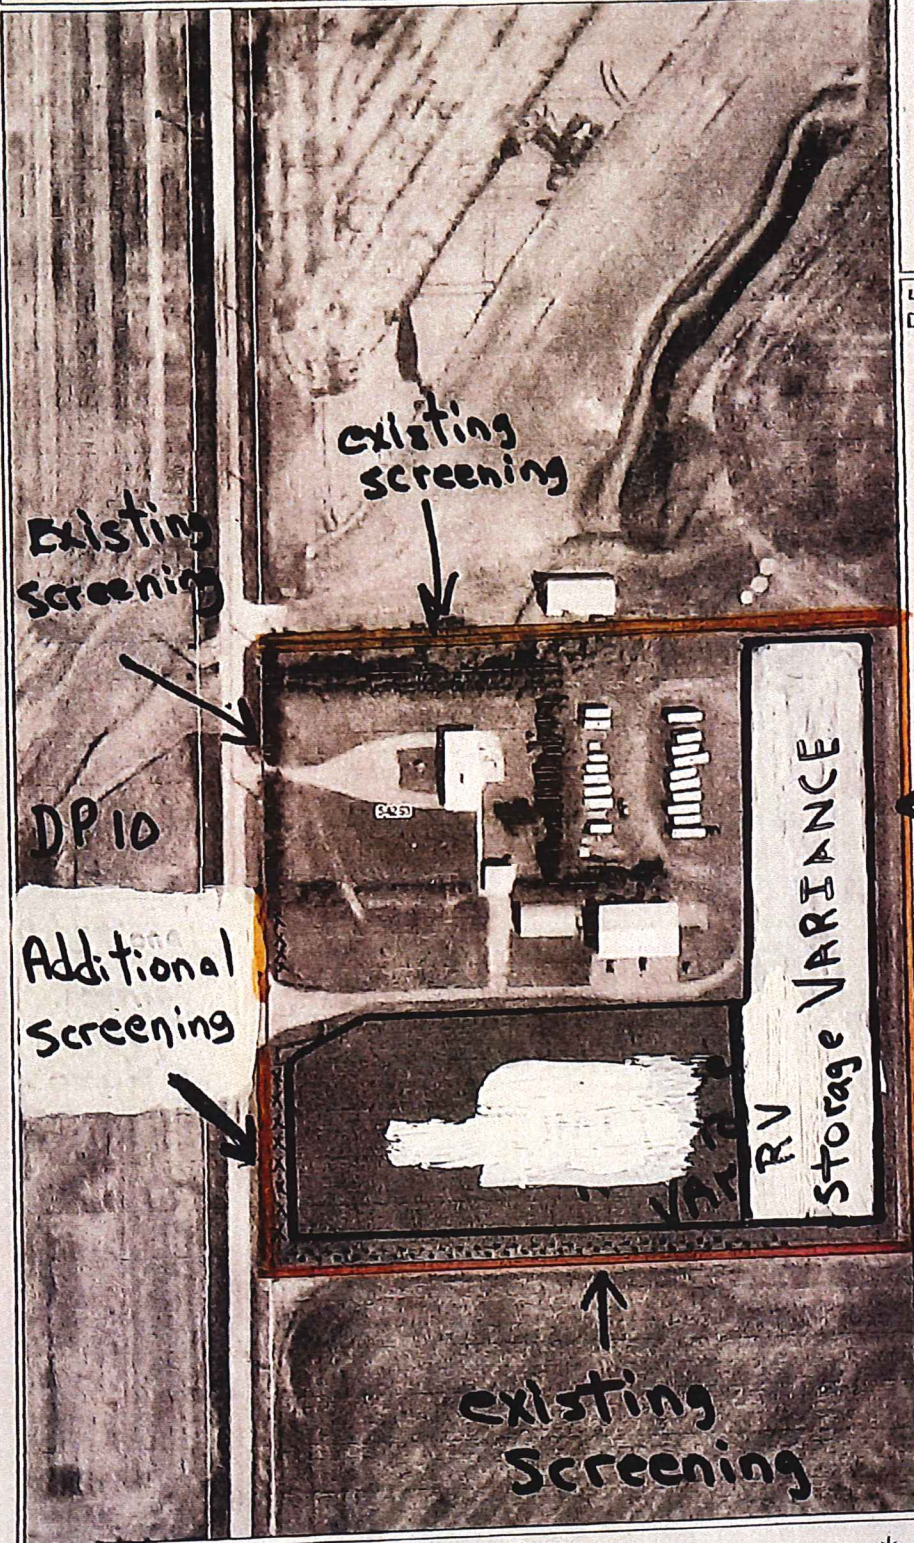 existing
screening
Existing
screening
DP 10
Additional
screening
RV
Storage VARIANCE
VAR
existing
Screening